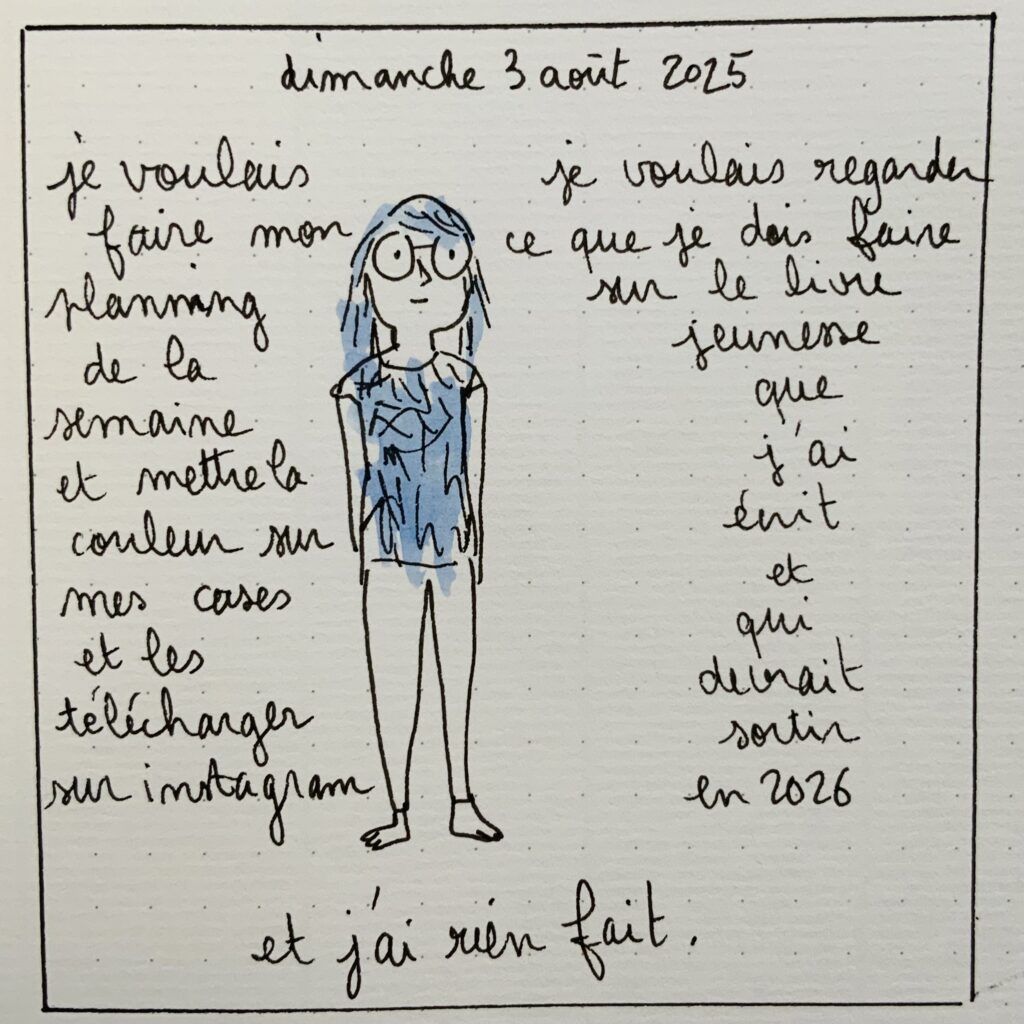 dimanche 3 août 2025
je voulais
faire mon
planning
de la
semaine
et mettre la
couleur sur
mes cases
et les
télécharger
sur instagram
je voulais regarder
ce que je dois faire
sur le livre
jeunesse
que
j'ai
écrit
et
qui
devrait
sortir
en 2026
et j'ai rien fait.